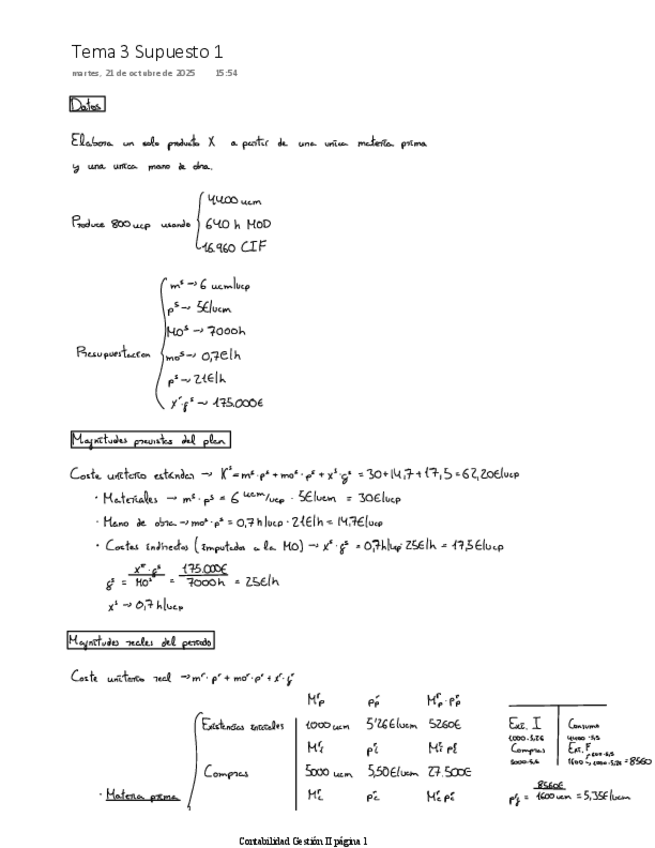 Tema 3 Supuesto 1
martes, 21 de octubre de 2025 15:54
Datos
Elabora un solo producto X a partir de una unica materia prima
y una unica mano de obra.
Produce 800 ucp usando
4400 ucm
640 h MOD
16.960 CIF
Presupuestacion
mˢ → 6 ucm/ucp
pˢ → 5€/ucm
MOˢ → 7000h
moˢ → 0,7€/h
pˢ → 21€/h
xˢ·gˢ → 175.000€
Magnitudes previstas del plan
Coste unitario estándar → Kˢ = mˢ·pˢ + moˢ·pˢ + xˢ·gˢ = 30+14,7+17,5 = 62,20€/ucp
· Materiales → mˢ·pˢ = 6 ucm/ucp · 5€/ucm = 30€/ucp
· Mano de obra → moˢ·pˢ = 0,7 h/ucp · 21€/h = 14,7€/ucp
· Costes Indirectos (imputados a la MO) → xˢ·gˢ = 0,7h/ucp · 25€/h = 17,5€/ucp
gˢ = xˢ·gˢ / MOˢ = 175.000€ / 7000h = 25€/h
xˢ → 0,7 h/ucp
Magnitudes reales del periodo
Coste unitario real → mʳ·pʳ + moʳ·pʳ + xʳ·gʳ
Existencias iniciales 1000 ucm 5'26€/ucm 5260€
Compras 5000 ucm 5,50€/ucm 27.500€
· Materia prima
Ext. I Consumo
1000·5,26
Compras Ext. F
8560€ / 1600 ucm = 5,35€/ucm
Contabilidad Gestión II página 1